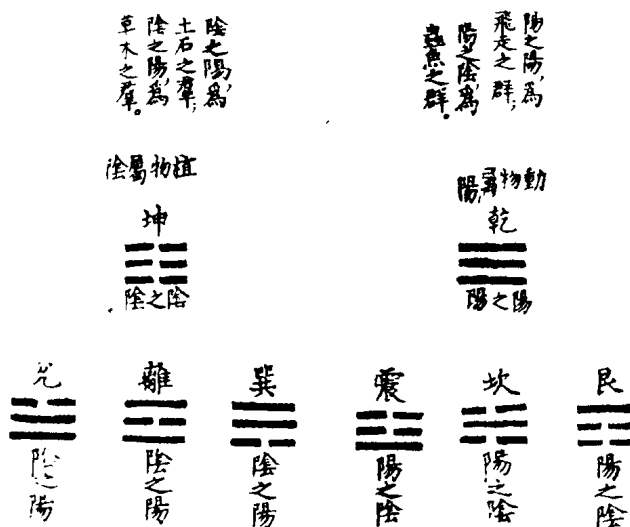 陽之陽,為
飛走之群;
陽之陰,為
蟲魚之群。
陰之陽,為
土石之羣;
陰之陽,為
草木之羣。
動物屬陽
植物屬陰
乾
陽之陽
坤
陰之陰
艮
陽之陰
坎
陽之陰
震
陽之陰
巽
陰之陽
離
陰之陽
兌
陰之陽